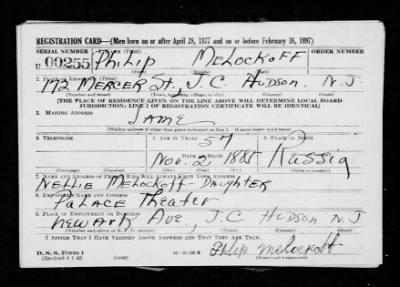 REGISTRATION CARD—(Men born on or after April 28, 1877 and on or before February 16, 1897)
SERIAL NUMBER 1. NAME (Print) ORDER NUMBER
U 09255 Philip MeLockoff
(First) (Middle) (Last)
2. PLACE OF RESIDENCE (Print)
172 Mercer St., J.C. Hudson N.J
(Number and street) (Town, township, village, or city) (County) (State)
[THE PLACE OF RESIDENCE GIVEN ON THE LINE ABOVE WILL DETERMINE LOCAL BOARD
JURISDICTION; LINE 2 OF REGISTRATION CERTIFICATE WILL BE IDENTICAL]
3. MAILING ADDRESS
Same
[Mailing address if other than place indicated on line 2. If same insert word same]
4. TELEPHONE 5. AGE IN YEARS 6. PLACE OF BIRTH
57
DATE OF BIRTH
Nov. 2 1885 Russia
7. NAME AND ADDRESS OF PERSON WHO WILL ALWAYS KNOW YOUR ADDRESS
Nellie MeLockoff-Daughter
8. EMPLOYER'S NAME AND ADDRESS
Palace Theater
9. PLACE OF EMPLOYMENT OR BUSINESS
Newark Ave., J.C Hudson N.J
(Number and street or R. F. D. number) (Town) (County) (State)
I AFFIRM THAT I HAVE VERIFIED ABOVE ANSWERS AND THAT THEY ARE TRUE.
Philip Melockoff
D. S. S. Form 1
(Revised 4-1-42) (over) (Registrant's signature)